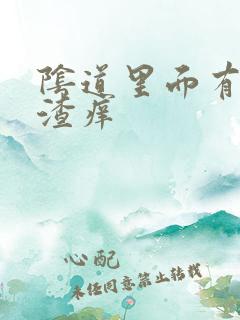 陰道里而有
渣痒
心配
未经同意禁止转载